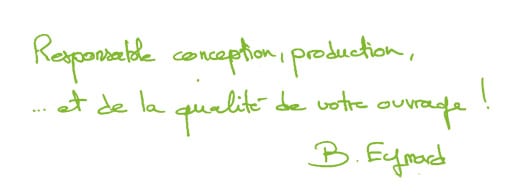 Responsable conception, production,
... et de la qualité de votre ouvrage !
B. Eymard